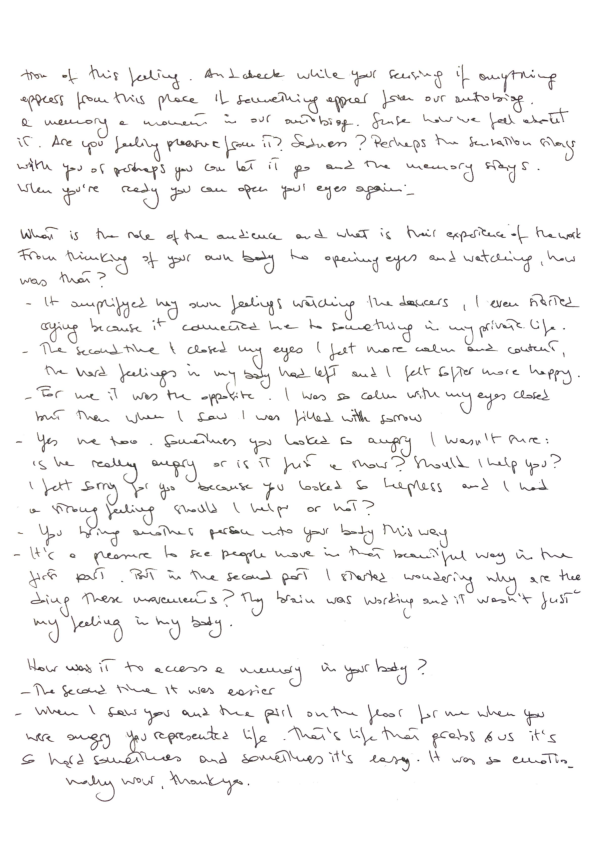 tion of this feeling. And check while your sensing if anything
appears from this place if something appear from our autobiog.
a memory a moment in our autobiog. Sense how we feel about
it. Are you feeling pleasure from it? Sadness? Perhaps the sensation stays
with you or perhaps you can let it go and the memory stays.
When you're ready you can open your eyes again._
What is the role of the audience and what is their experience of the work
From thinking of your own body to opening eyes and watching, how
was that?
- It amplifyed my own feelings watching the dancers, I even started
crying because it connected me to something in my private life.
- The second time I closed my eyes I felt more calm and content,
the hard feelings in my body had left and I felt softer more happy.
- For me it was the opposite. I was so calm with my eyes closed
but then when I saw I was filled with sorrow
- Yes me too. Sometimes you looked so angry I wasn't sure:
is he really angry or is it just a show? Should I help you?
I felt sorry for you because you looked so hepless and I had
a strong feeling should I help or not?
- You bring another person into your body this way
- It's a pleasure to see people move in that beautiful way in the
first part. But in the second part I started wondering why are the
doing these movements? My brain was working and it wasn't just
my feeling in my body.
How was it to access a memory in your body?
- The second time it was easier
- When I saw you and the girl on the floor for me when you
were angry you represented life. That's life that grabs us it's
so hard sometimes and sometimes it's easy. It was so emotio_
nally wow, thank you.